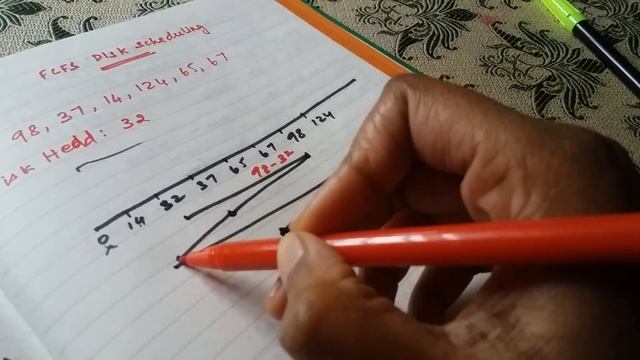 FCFS Disk scheduling
98, 37, 14, 124, 65, 67
isk Head: 32
0 14 32 37 65 67 98 124
98-32